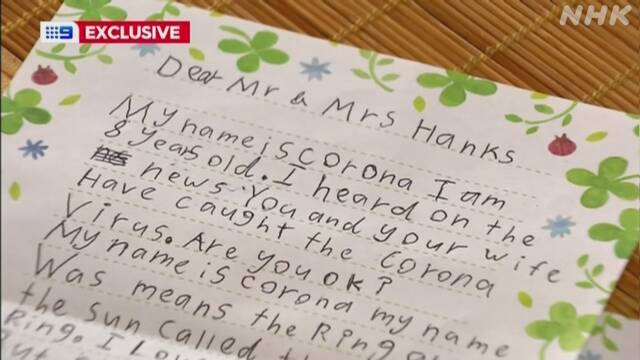 9
EXCLUSIVE
NHK
Dear Mr & Mrs Hanks
My name is corona I am
8 years old. I heard on the
news. You and your wife
Have caught the corona
Virus. Are you ok?
My name is corona my name
Was means the Ring
the sun called
Ring. I